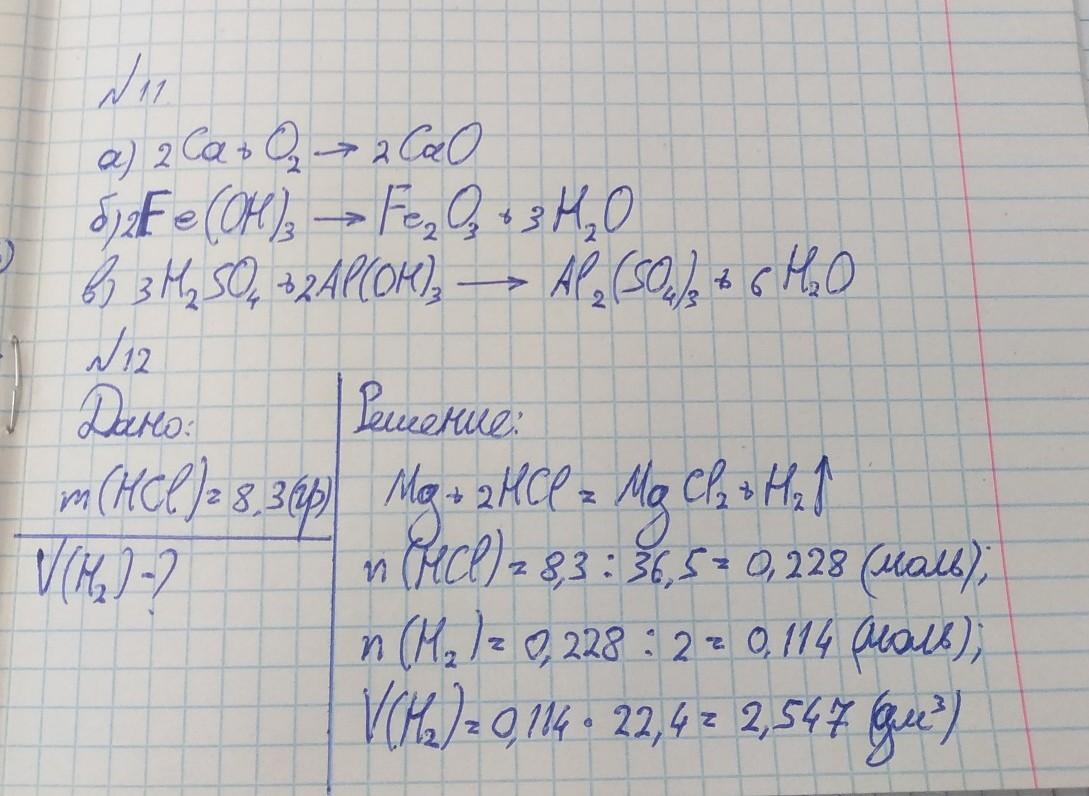 №11
а) 2Ca + O₂ → 2CaO
б) 2Fe(OH)₃ → Fe₂O₃ + 3H₂O
в) 3H₂SO₄ + 2Al(OH)₃ → Al₂(SO₄)₃ + 6H₂O
№12
Дано:
m(HCl) = 8,3(гр)
V(H₂) - ?
Решение:
Mg + 2HCl = MgCl₂ + H₂↑
n(HCl) = 8,3 : 36,5 = 0,228 (моль);
n(H₂) = 0,228 : 2 = 0,114 (моль);
V(H₂) = 0,114 · 22,4 = 2,547 (дм³)